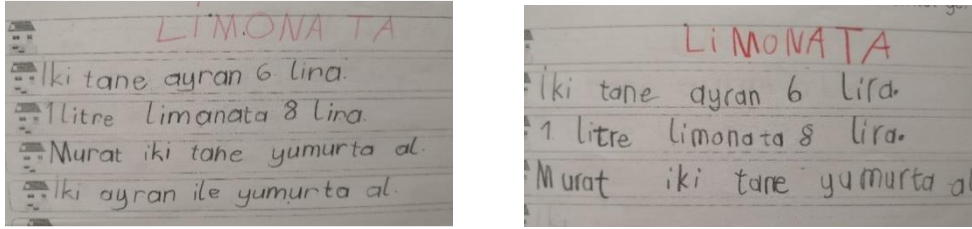 LİMONATA
İki tane ayran 6 lira.
1 litre limanata 8 lira.
Murat iki tane yumurta al.
İki ayran ile yumurta al.
LİMONATA
İki tane ayran 6 lira.
1 litre limonata 8 lira.
Murat iki tane yumurta al